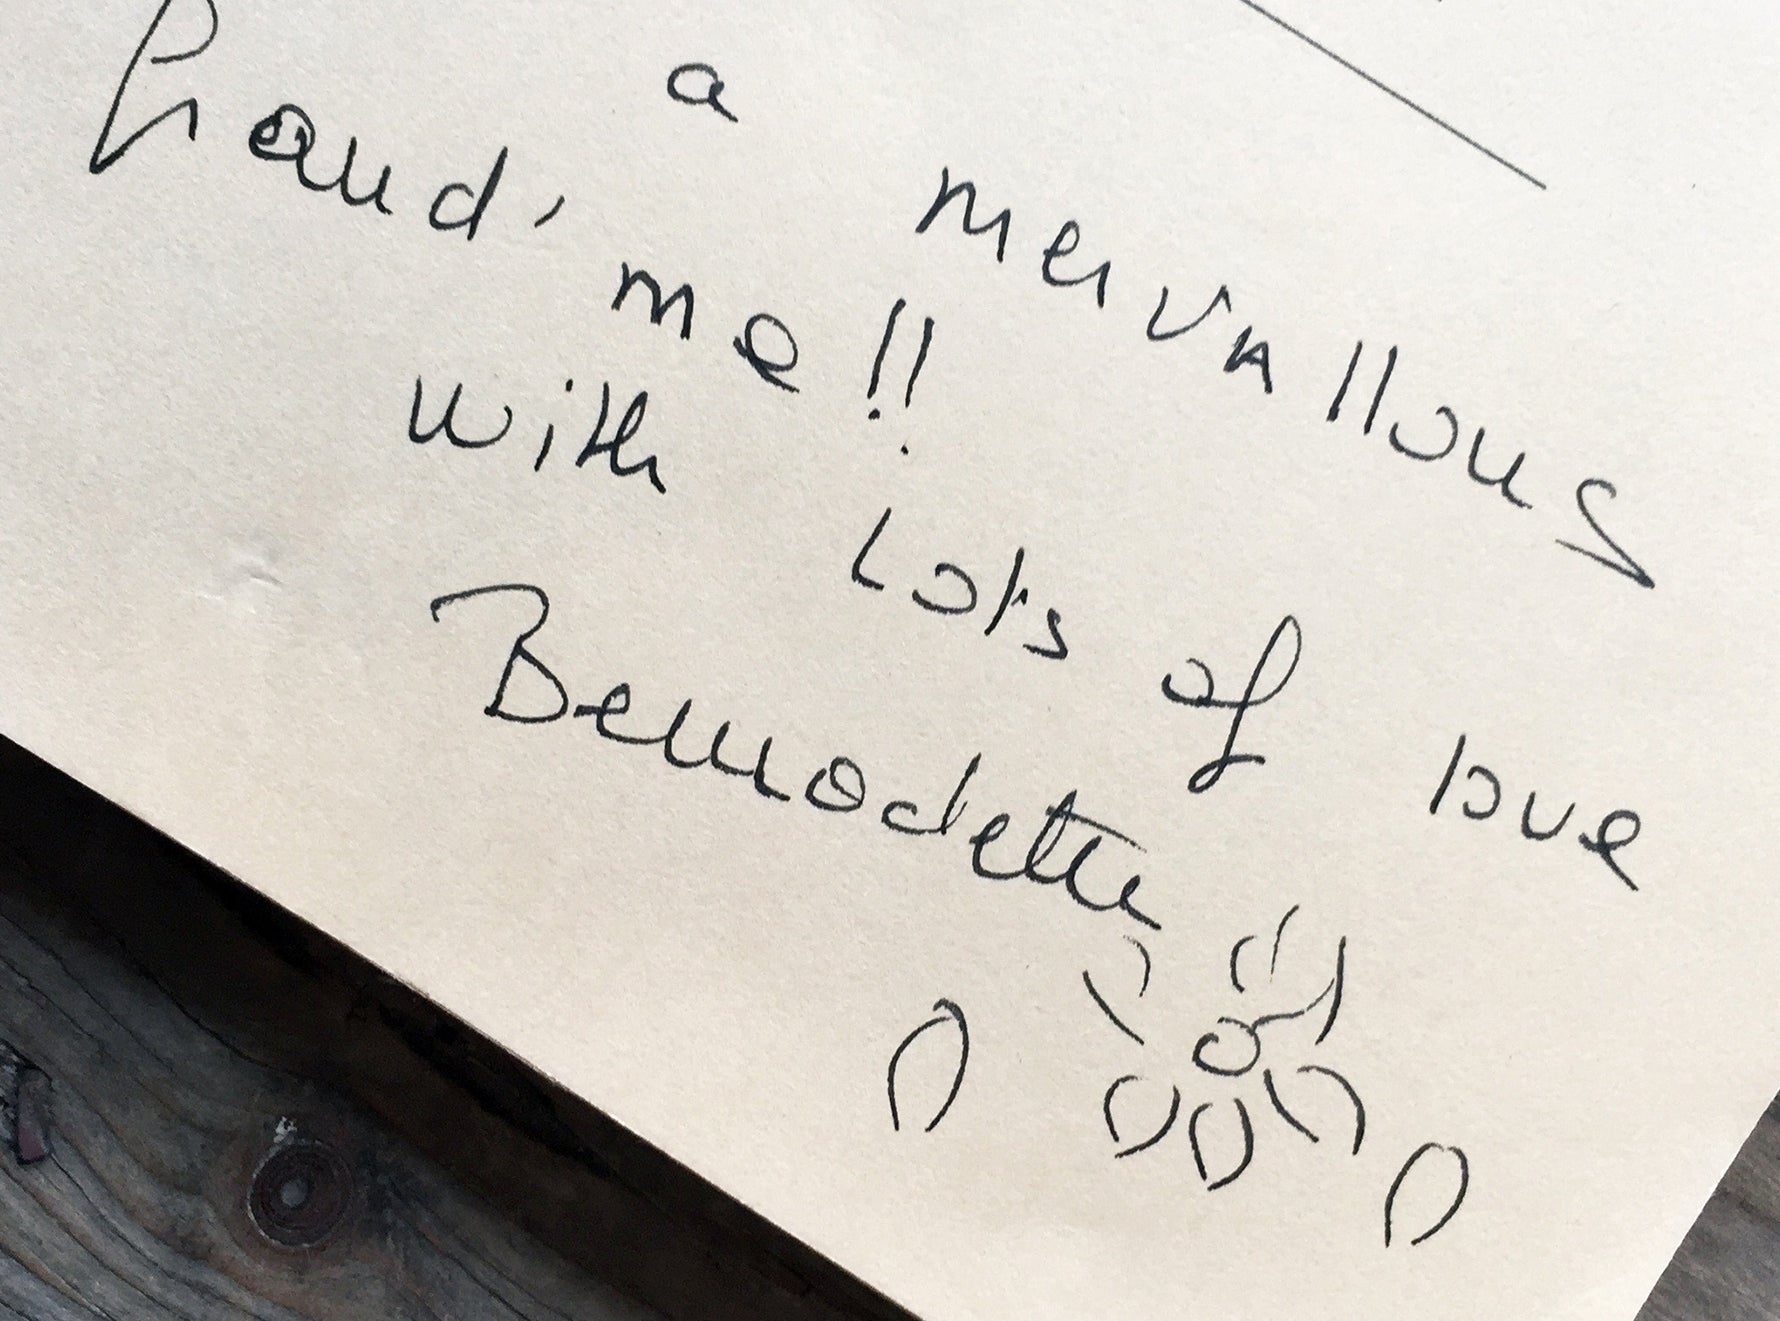 a mervallous
me!!
with lots of love
Bernadette